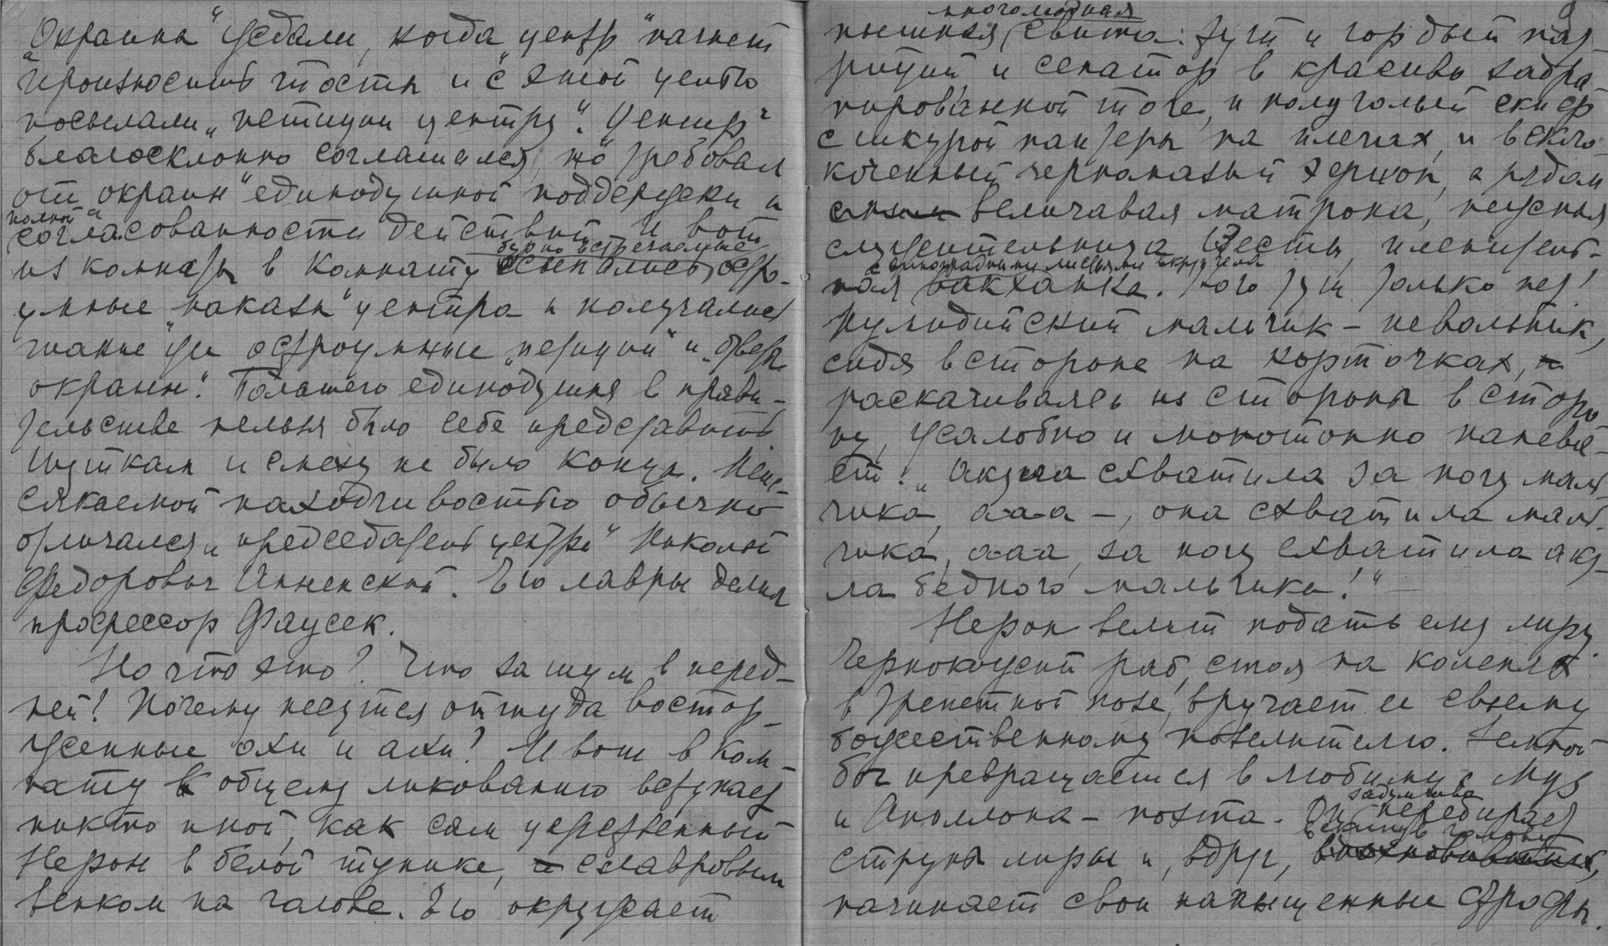 „Окраины" ждали, когда „центр" начнет
произносить тосты и с этой целью
посылали „петиции центру". „Центр"
благосклонно соглашался, но требовал
от „окраин" единодушной поддержки и
полной
согласованности действий. И вот
бурно встречаемые
из комнаты в комнату сыпались остро-
умные „наказы" центра и получались
такие же остроумные „петиции" и „ответы
окраин". Большего единодушия в прави-
тельстве нельзя было себе представить.
Шуткам и смеху не было конца. Неис-
сякаемой находчивостью обычно
отличался „председатель центра" Николай
Федорович Анненский. Его лавры делил
профессор Фаусек.
Но что это? Что за шум в перед-
ней? Почему несутся оттуда востор-
женные охи и ахи? И вот в ком-
нату к общему ликованию вступает
никто иной, как сам царственный
Нерон в белой тунике, с лавровым
венком на голове. Его окружает
многолюдная
пышная свита: тут и гордый пат-
риций и сенатор в красиво задра-
пированной тоге, и полуголый скиф
с шкурой пантеры на плечах, и всклo-
коченный черноказый эфиоп, а рядом
величавая матрона, нежная
служительница Весты, пленитель-
с виноградными листьями вокруг чела
ная вакханка. Кого тут только нет!
Нумидийский мальчик – невольник,
сидя в стороне на корточках,
раскачиваясь из стороны в сторо-
ну, жалобно и монотонно напева-
ет: „Акула схватила за ногу маль-
чика, а-а-а –, она схватила маль-
чика, а-а-а, за ногу схватила аку-
ла бедного мальчика!"
Нерон велит подать ему лиру.
Чернокожий раб, стоя на коленях
в трепетной позе, вручает ее своему
божественному повелителю. Земной
бог превращается в любимца Муз
и Аполлона – поэта. Он
задумчиво
перебирает
вскинув голову
струны лиры и, вдруг,
начинает свои напыщенные строфы.